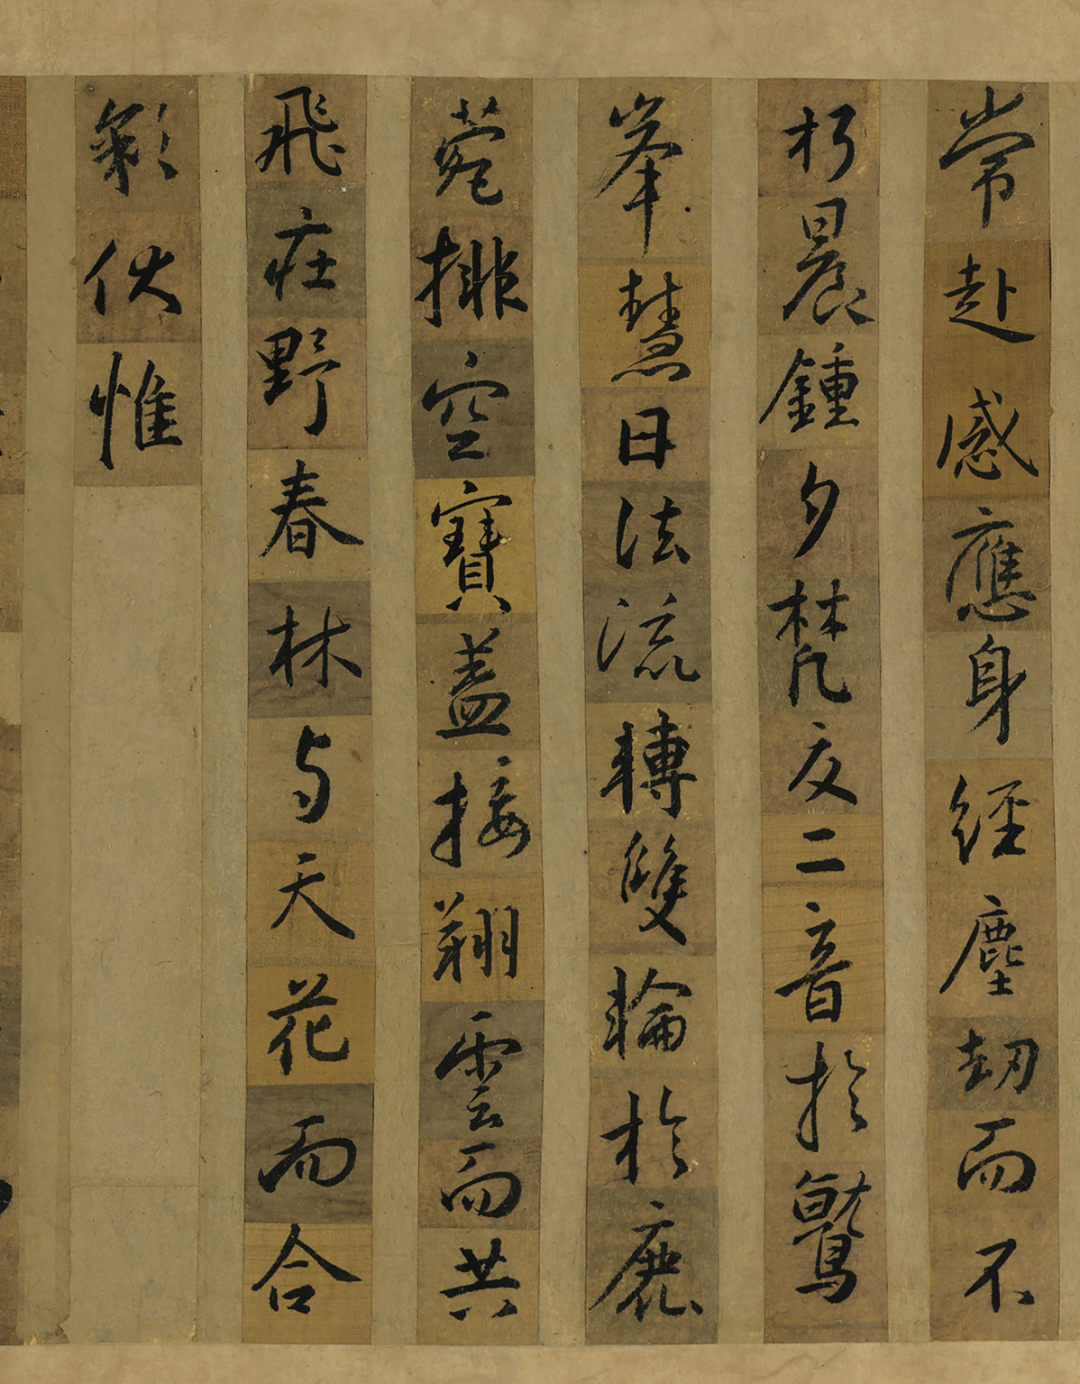 常赴感應身經塵刼而不
朽晨鍾夕梵交二音於鷲
峯慧日法流轉雙輪於鹿
菀排空寶盖接翔雲而共
飛莊野春林与天花而合
彩伏惟